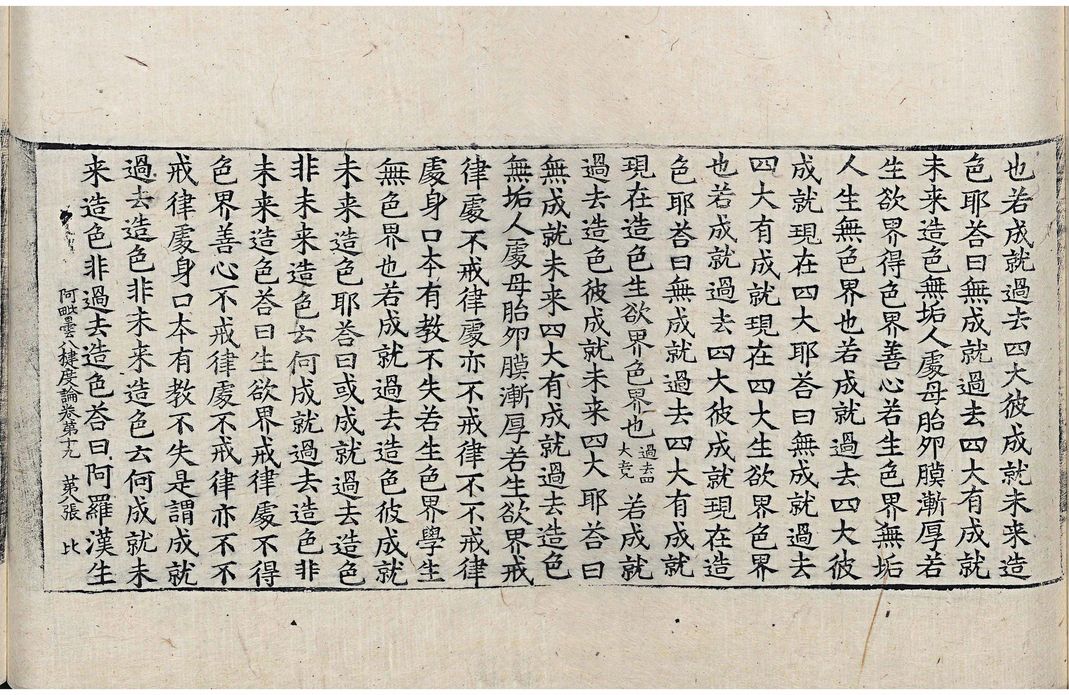 也若成就過去四大彼成就未来造
色耶荅曰無成就過去四大有成就
未来造色無垢人處母胎夘膜漸厚若
生欲界得色界善心若生色界無垢
人生無色界也若成就過去四大彼
成就現在四大耶荅曰無成就過去
四大有成就現在四大生欲界色界
也若成就過去四大彼成就現在造
色耶荅曰無成就過去四大有成就
現在造色生欲界色界也過去四大竟若成就
過去造色彼成就未来四大耶荅曰
無成就未来四大有成就過去造色
無垢人處母胎夘膜漸厚若生欲界戒
律處不戒律處亦不戒律不不戒律
處身口本有教不失若生色界學生
無色界也若成就過去造色彼成就
未来造色耶荅曰或成就過去造色
非未来造色云何成就過去造色非
未来造色荅曰生欲界戒律處不得
色界善心不戒律處不戒律亦不不
戒律處身口本有教不失是謂成就
過去造色非未来造色云何成就未
来造色非過去造色荅曰阿羅漢生
阿毗曇八犍度論卷第十九 第 張 比